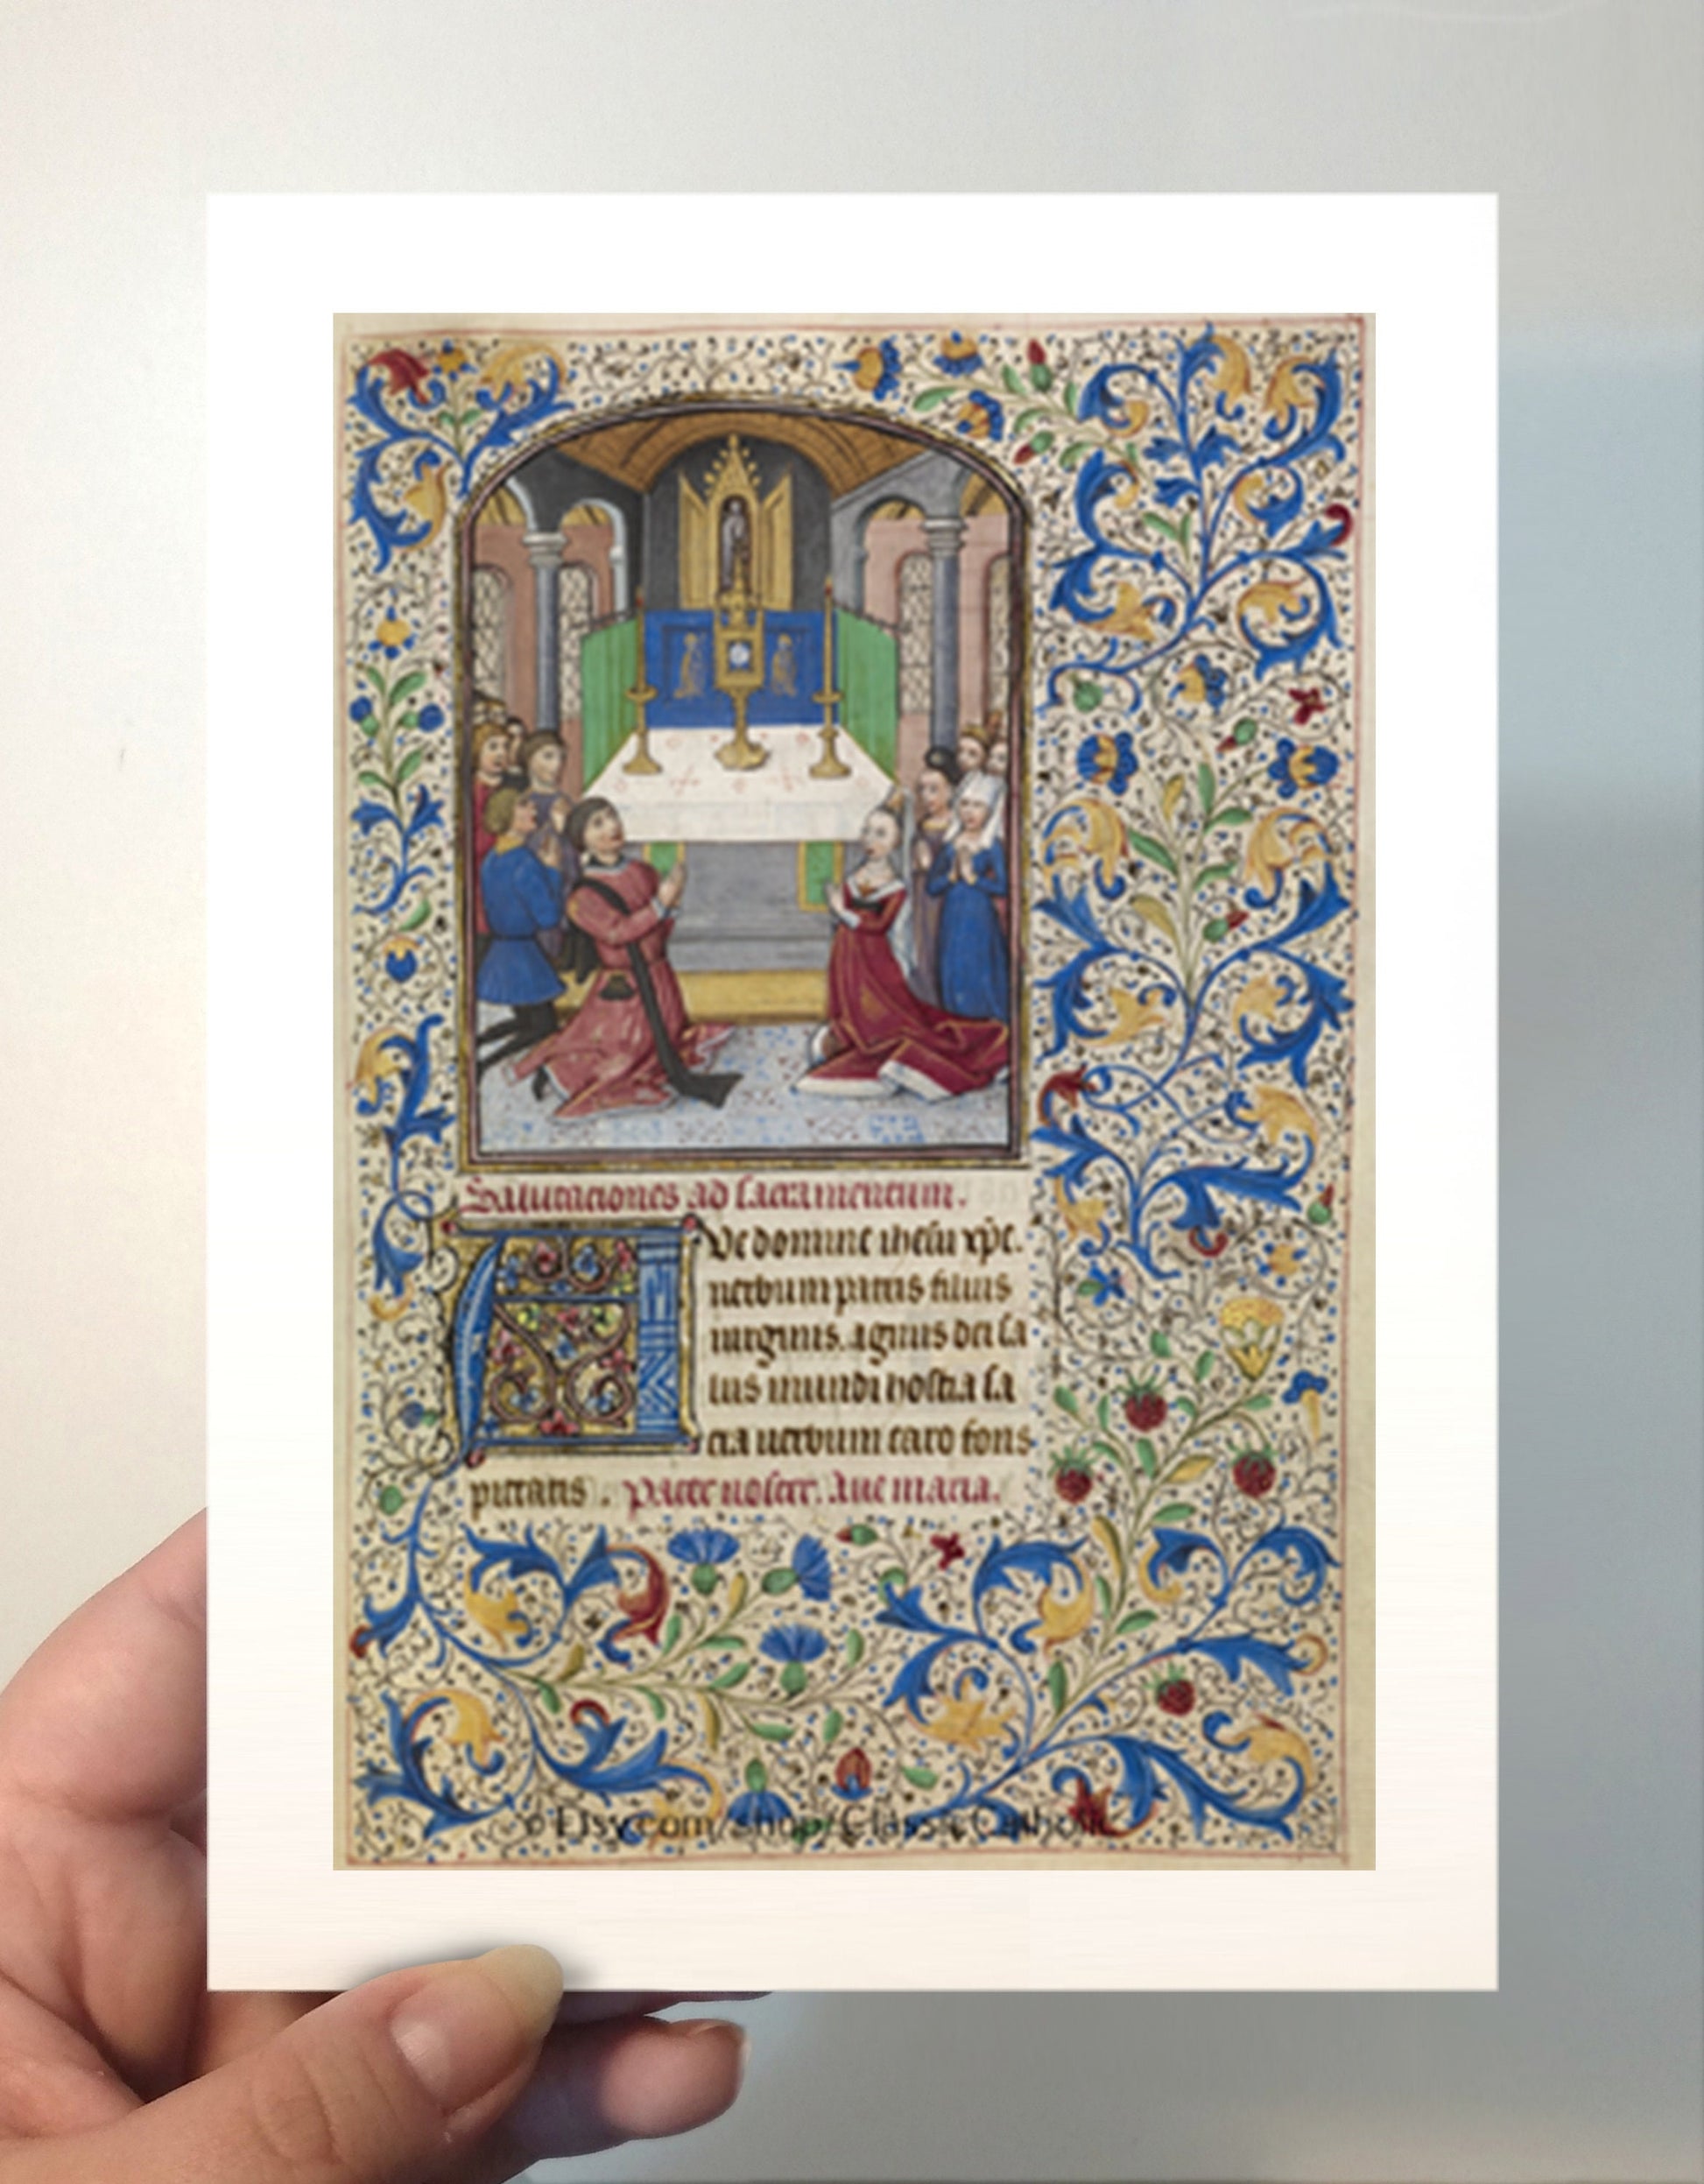 Salutaciones ad sacramentum.
Ave domine ihesu xpe.
uerbum patris filius
uirginis. agnus dei sa
lus mundi hostia sa
cra uerbum caro fons
pietatis. Pater noster. Aue maria.
© Etsy.com/shop/ClassicCatholic